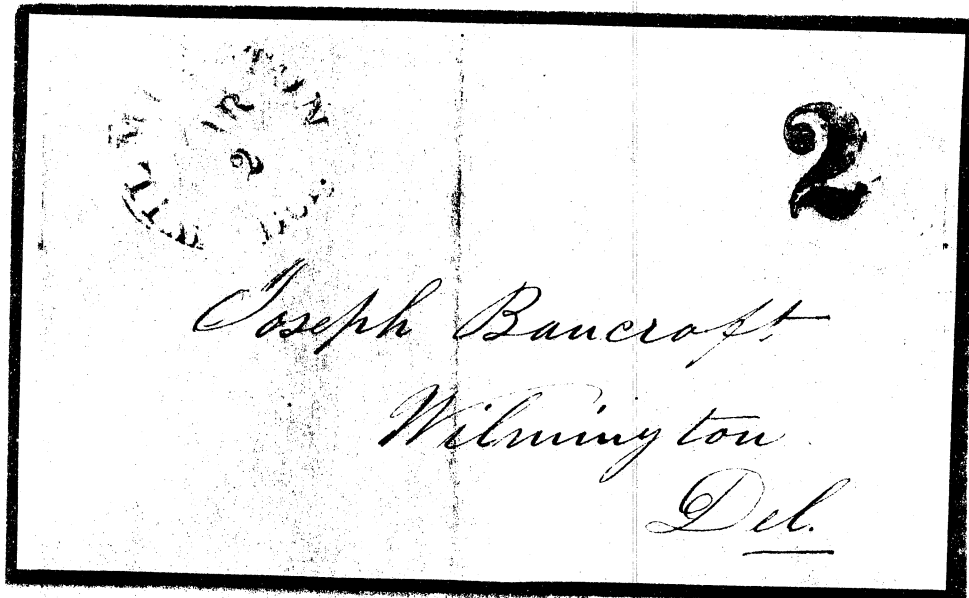 2
2
Joseph Bancroft
Wilmington
Del.